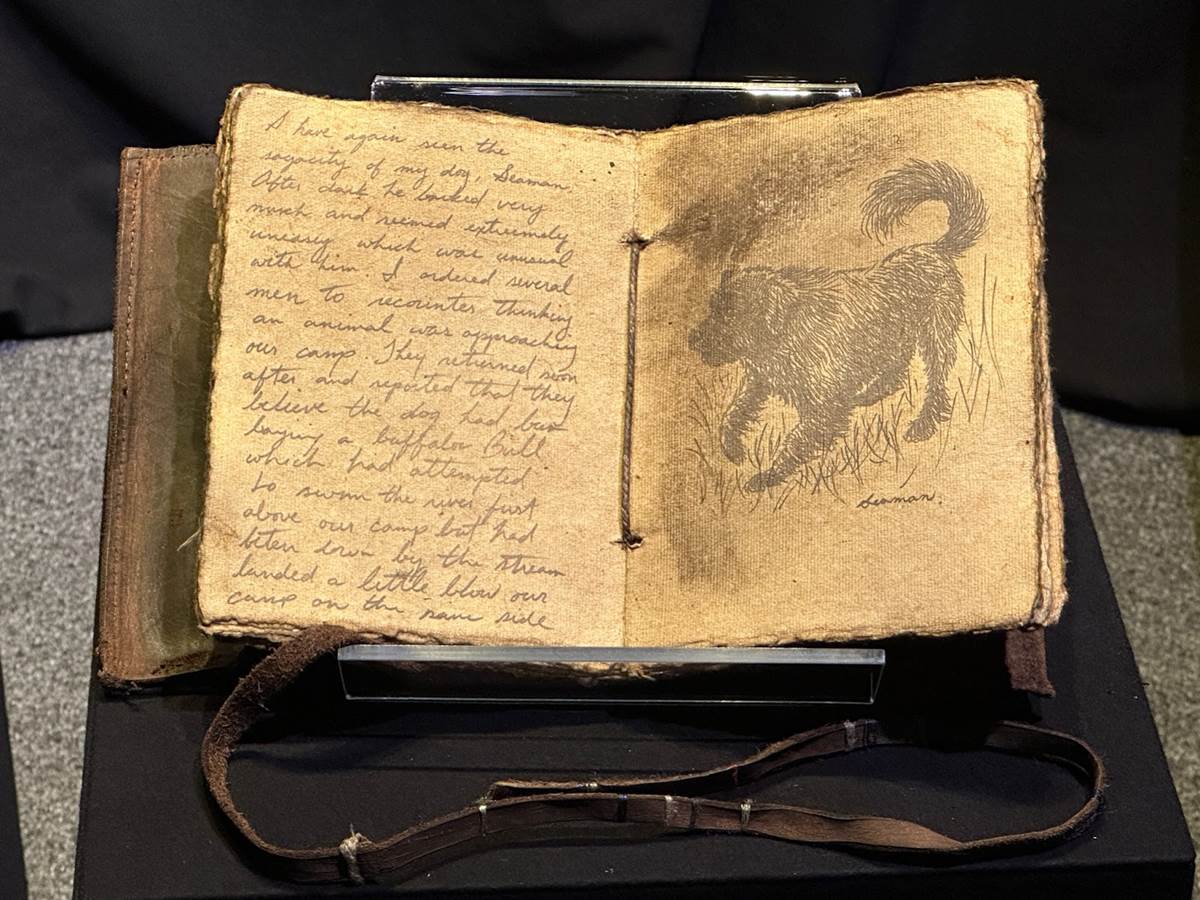 I have again seen the
sagacity of my dog, Seaman.
After dark he barked very
much and seemed extreemely
uneasy which was unusual
with him. I ordered several
men to recointer thinking
an animal was approaching
our camp. They returned soon
after and reported that they
believe the dog had been
baying a buffaloe Bull
which had attempted
to swim the river just
above our camp but had
beten down by the stream
landed a little blow our
camp on the same side
Seaman.